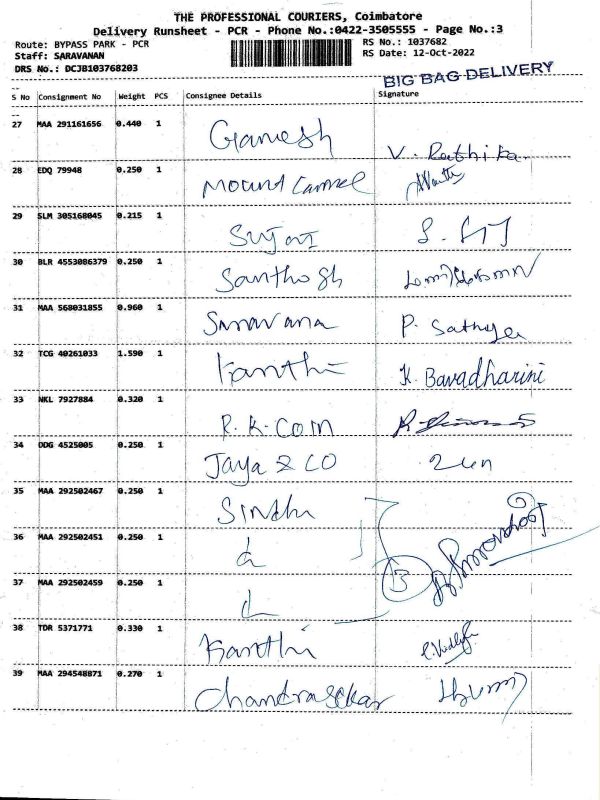 THE PROFESSIONAL COURIERS, Coimbatore
Delivery Runsheet - PCR - Phone No.:0422-3505555 - Page No.:3
Route: BYPASS PARK - PCR RS No.: 1037682
Staff: SARAVANAN RS Date: 12-Oct-2022
DRS No.: DCJB103768203
BIG BAG DELIVERY
S No Consignment No Weight PCS Consignee Details Signature
27 MAA 291161656 0.440 1 Ganesh V. Rathika
28 EDQ 79948 0.250 1 Mount Carmel
29 SLM 305168045 0.215 1 Sujai
30 BLR 4553086379 0.250 1 Santhosh
31 MAA 568031855 0.960 1 Saravana P. Sathya
32 TCG 40261033 1.590 1 Kanthi K. Bavadharini
33 NKL 7927884 0.320 1 R.K.Com
34 ODG 4525005 0.250 1 Jaya & CO
35 MAA 292502467 0.250 1 Sindhu
36 MAA 292502451 0.250 1
37 MAA 292502459 0.250 1 3
38 TDR 5371771 0.330 1 Kanthi
39 MAA 294548871 0.270 1 Chandrasekar